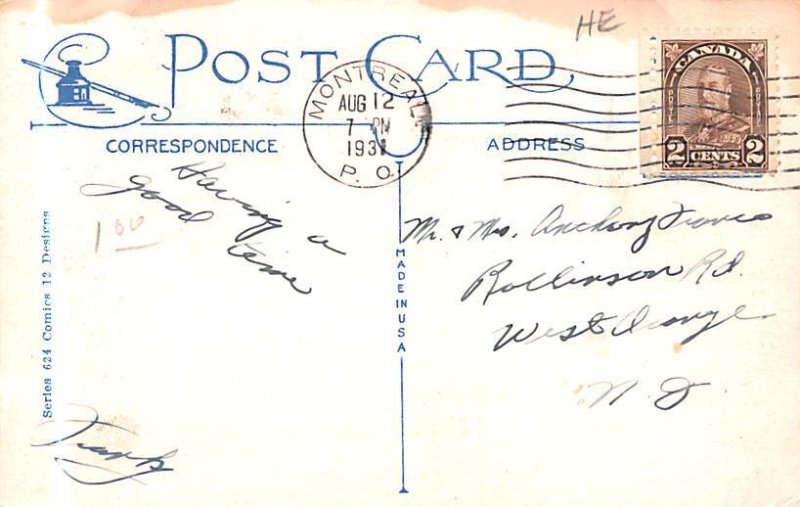 HE
POST CARD
MONTREAL
AUG 12
7 PM
1931
P. Q.
CANADA
2 CENTS 2
CORRESPONDENCE
ADDRESS
Having a
good
time
1 00
Frank
Mr. & Mrs. Anthony Franco
Rollinson Rd.
West Orange
N. J.
MADE IN USA
Series 624 Comics 12 Designs